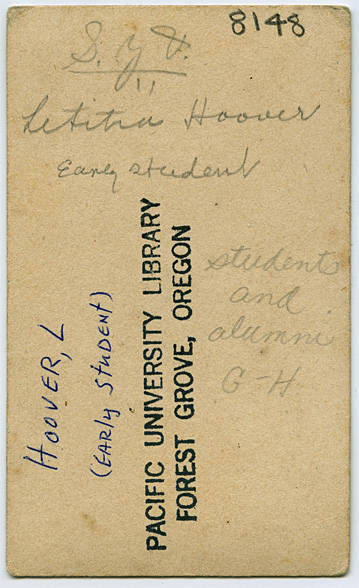 8148
S. y t.
11
Letitia Hoover
Early student
students
and
alumni
G-H
PACIFIC UNIVERSITY LIBRARY
FOREST GROVE, OREGON
HOOVER, L
(EARLY STUDENT)